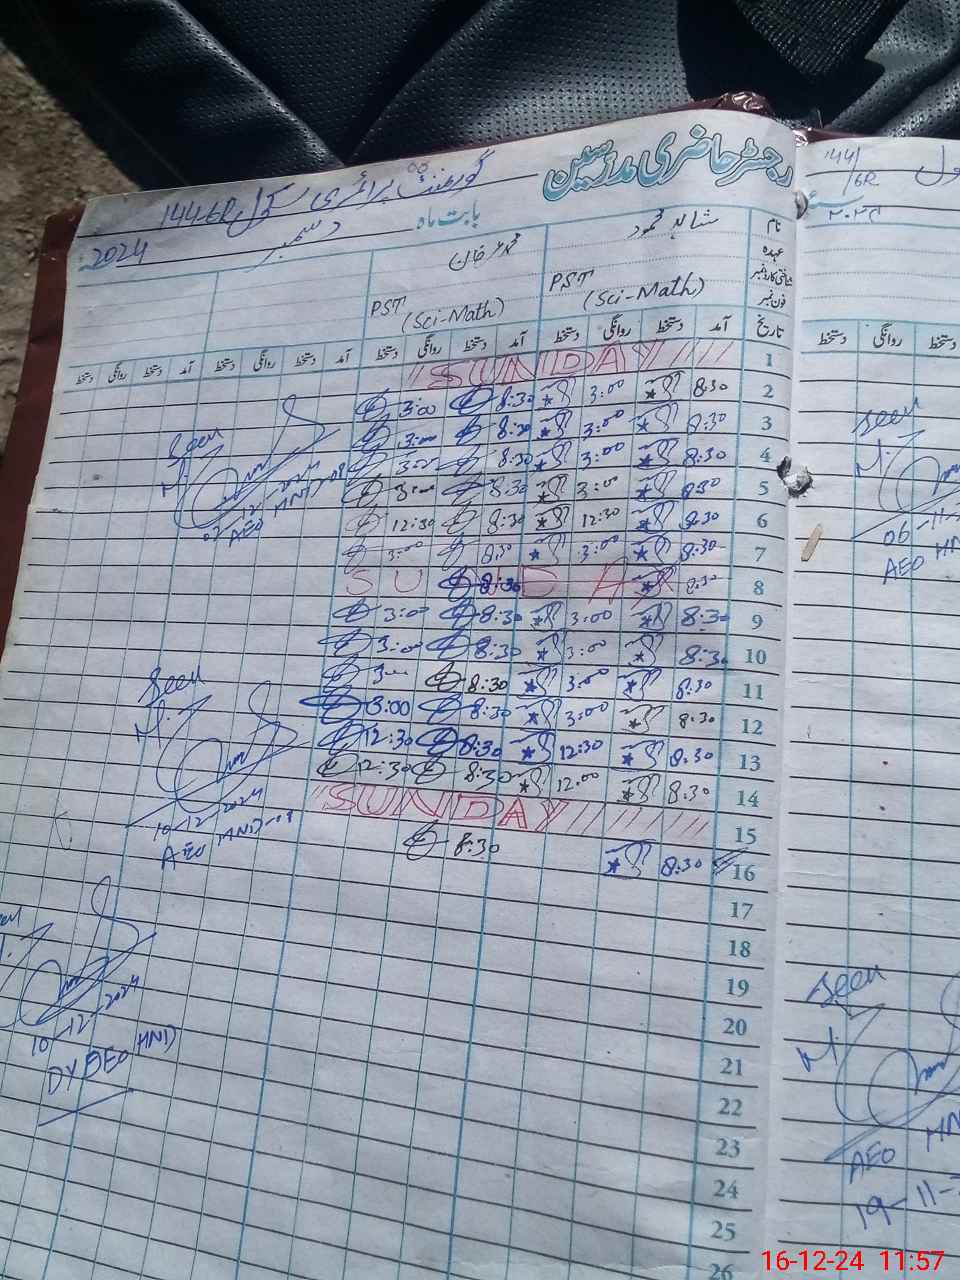 رجسٹر حاضری مدرسین
گورنمنٹ پرائمری سکول 144-6R
بابت ماہ دسمبر 2024
نام شاہد محمود
عہدہ
شناختی کارڈ نمبر PST (Sci-Math) PST (Sci-Math)
فون نمبر
تاریخ آمد دستخط روانگی دستخط آمد دستخط روانگی دستخط آمد دستخط روانگی دستخط آمد دستخط روانگی دستخط
1 SUNDAY
2 8:30 3:00 8:30 3:00
3 8:30 3:00 8:30 3:00
4 8:30 3:00 8:30 3:00
5 8:30 3:00 8:30 3:00
6 8:30 12:30 8:30 12:30
7 8:30 3:00 8:30 3:00
8 SUNDAY 8:30 8:30
9 8:30 3:00 8:30 3:00
10 8:30 3:00 8:30 3:00
11 8:30 3:00 8:30 3:00
12 8:30 3:00 8:30 3:00
13 8:30 12:30 8:30 12:30
14 8:30 12:00 8:30 12:30
15 SUNDAY
16 8:30 8:30
17
18
19
20
21
22
23
24
25
26
Seen
02-12-2024
AEO HND-08
Seen
10-12-2024
AEO HND-08
10-12-2024
DY DEO HND
144/6R
دستخط روانگی دستخط
Seen
06-11-
AEO HN
Seen
AEO HN
19-11-
16-12-24 11:57